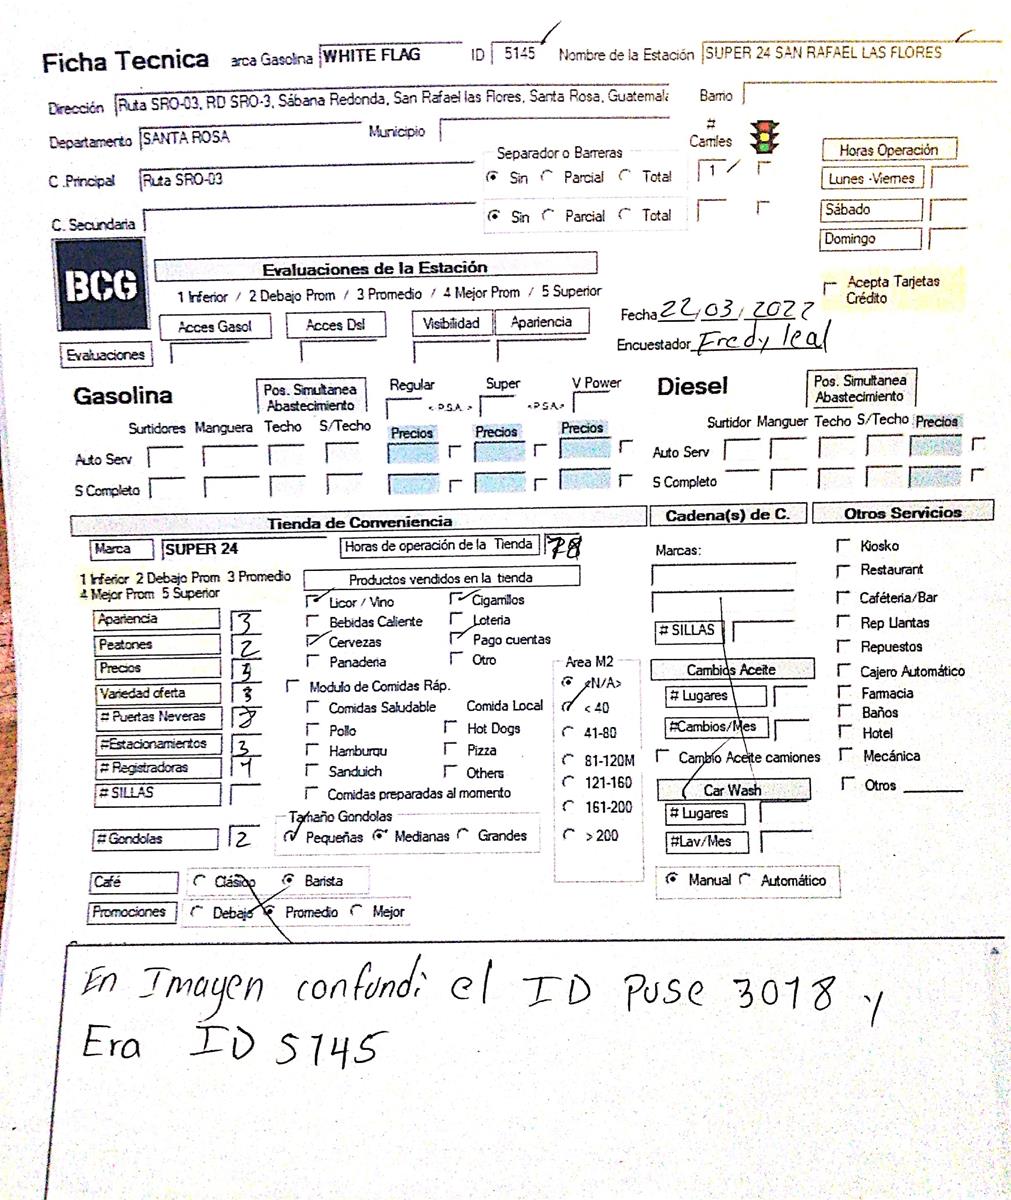 Ficha Tecnica arca Gasolina WHITE FLAG ID 5145 Nombre de la Estación SUPER 24 SAN RAFAEL LAS FLORES
Dirección Ruta SRO-03, RD SRO-3, Sábana Redonda, San Rafael las Flores, Santa Rosa, Guatemala Barrio
Departamento SANTA ROSA Municipio # Carriles
C .Principal Ruta SRO-03 Separador o Barreras Sin Parcial Total 1
C. Secundaria Sin Parcial Total
Horas Operación
Lunes -Viernes
Sábado
Domingo
BCG
Evaluaciones de la Estación
1 Inferior / 2 Debajo Prom / 3 Promedio / 4 Mejor Prom / 5 Superior
Acepta Tarjetas
Crédito
Acces Gasol Acces Dsl Visibilidad Apariencia
Evaluaciones
Fecha 22/03/2022
Encuestador Fredy leal
Gasolina Pos. Simultanea Abastecimiento Regular <P.S.A.> Super <P.S.A.> V Power
Surtidores Manguera Techo S/Techo Precios Precios Precios
Auto Serv
S Completo
Diesel Pos. Simultanea Abastecimiento
Surtidor Manguer Techo S/Techo Precios
Auto Serv
S Completo
Tienda de Conveniencia
Marca SUPER 24 Horas de operación de la Tienda
1 Inferior 2 Debajo Prom 3 Promedio
4 Mejor Prom 5 Superior
Apariencia 3
Peatones 2
Precios
Variedad oferta 3
# Puertas Neveras
#Estacionamientos 3
# Registradoras 1
# SILLAS
# Gondolas 2
Productos vendidos en la tienda
Licor / Vino Cigarrillos
Bebidas Caliente Loteria
Cervezas Pago cuentas
Panaderia Otro
Modulo de Comidas Ráp.
Comidas Saludable Comida Local
Pollo Hot Dogs
Hamburqu Pizza
Sanduich Others
Comidas preparadas al momento
Tamaño Gondolas
Pequeñas Medianas Grandes
Area M2
<N/A>
< 40
41-80
81-120M
121-160
161-200
> 200
Café Clásico Barista
Promociones Debajo Promedio Mejor
Cadena(s) de C.
Marcas:
# SILLAS
Cambios Aceite
# Lugares
#Cambios/Mes
Cambio Aceite camiones
Car Wash
# Lugares
#Lav/Mes
Manual Automático
Otros Servicios
Kiosko
Restaurant
Caféteria/Bar
Rep Llantas
Repuestos
Cajero Automático
Farmacia
Baños
Hotel
Mecánica
Otros
En Imagen confundi el ID Puse 3018 y
Era ID 5145